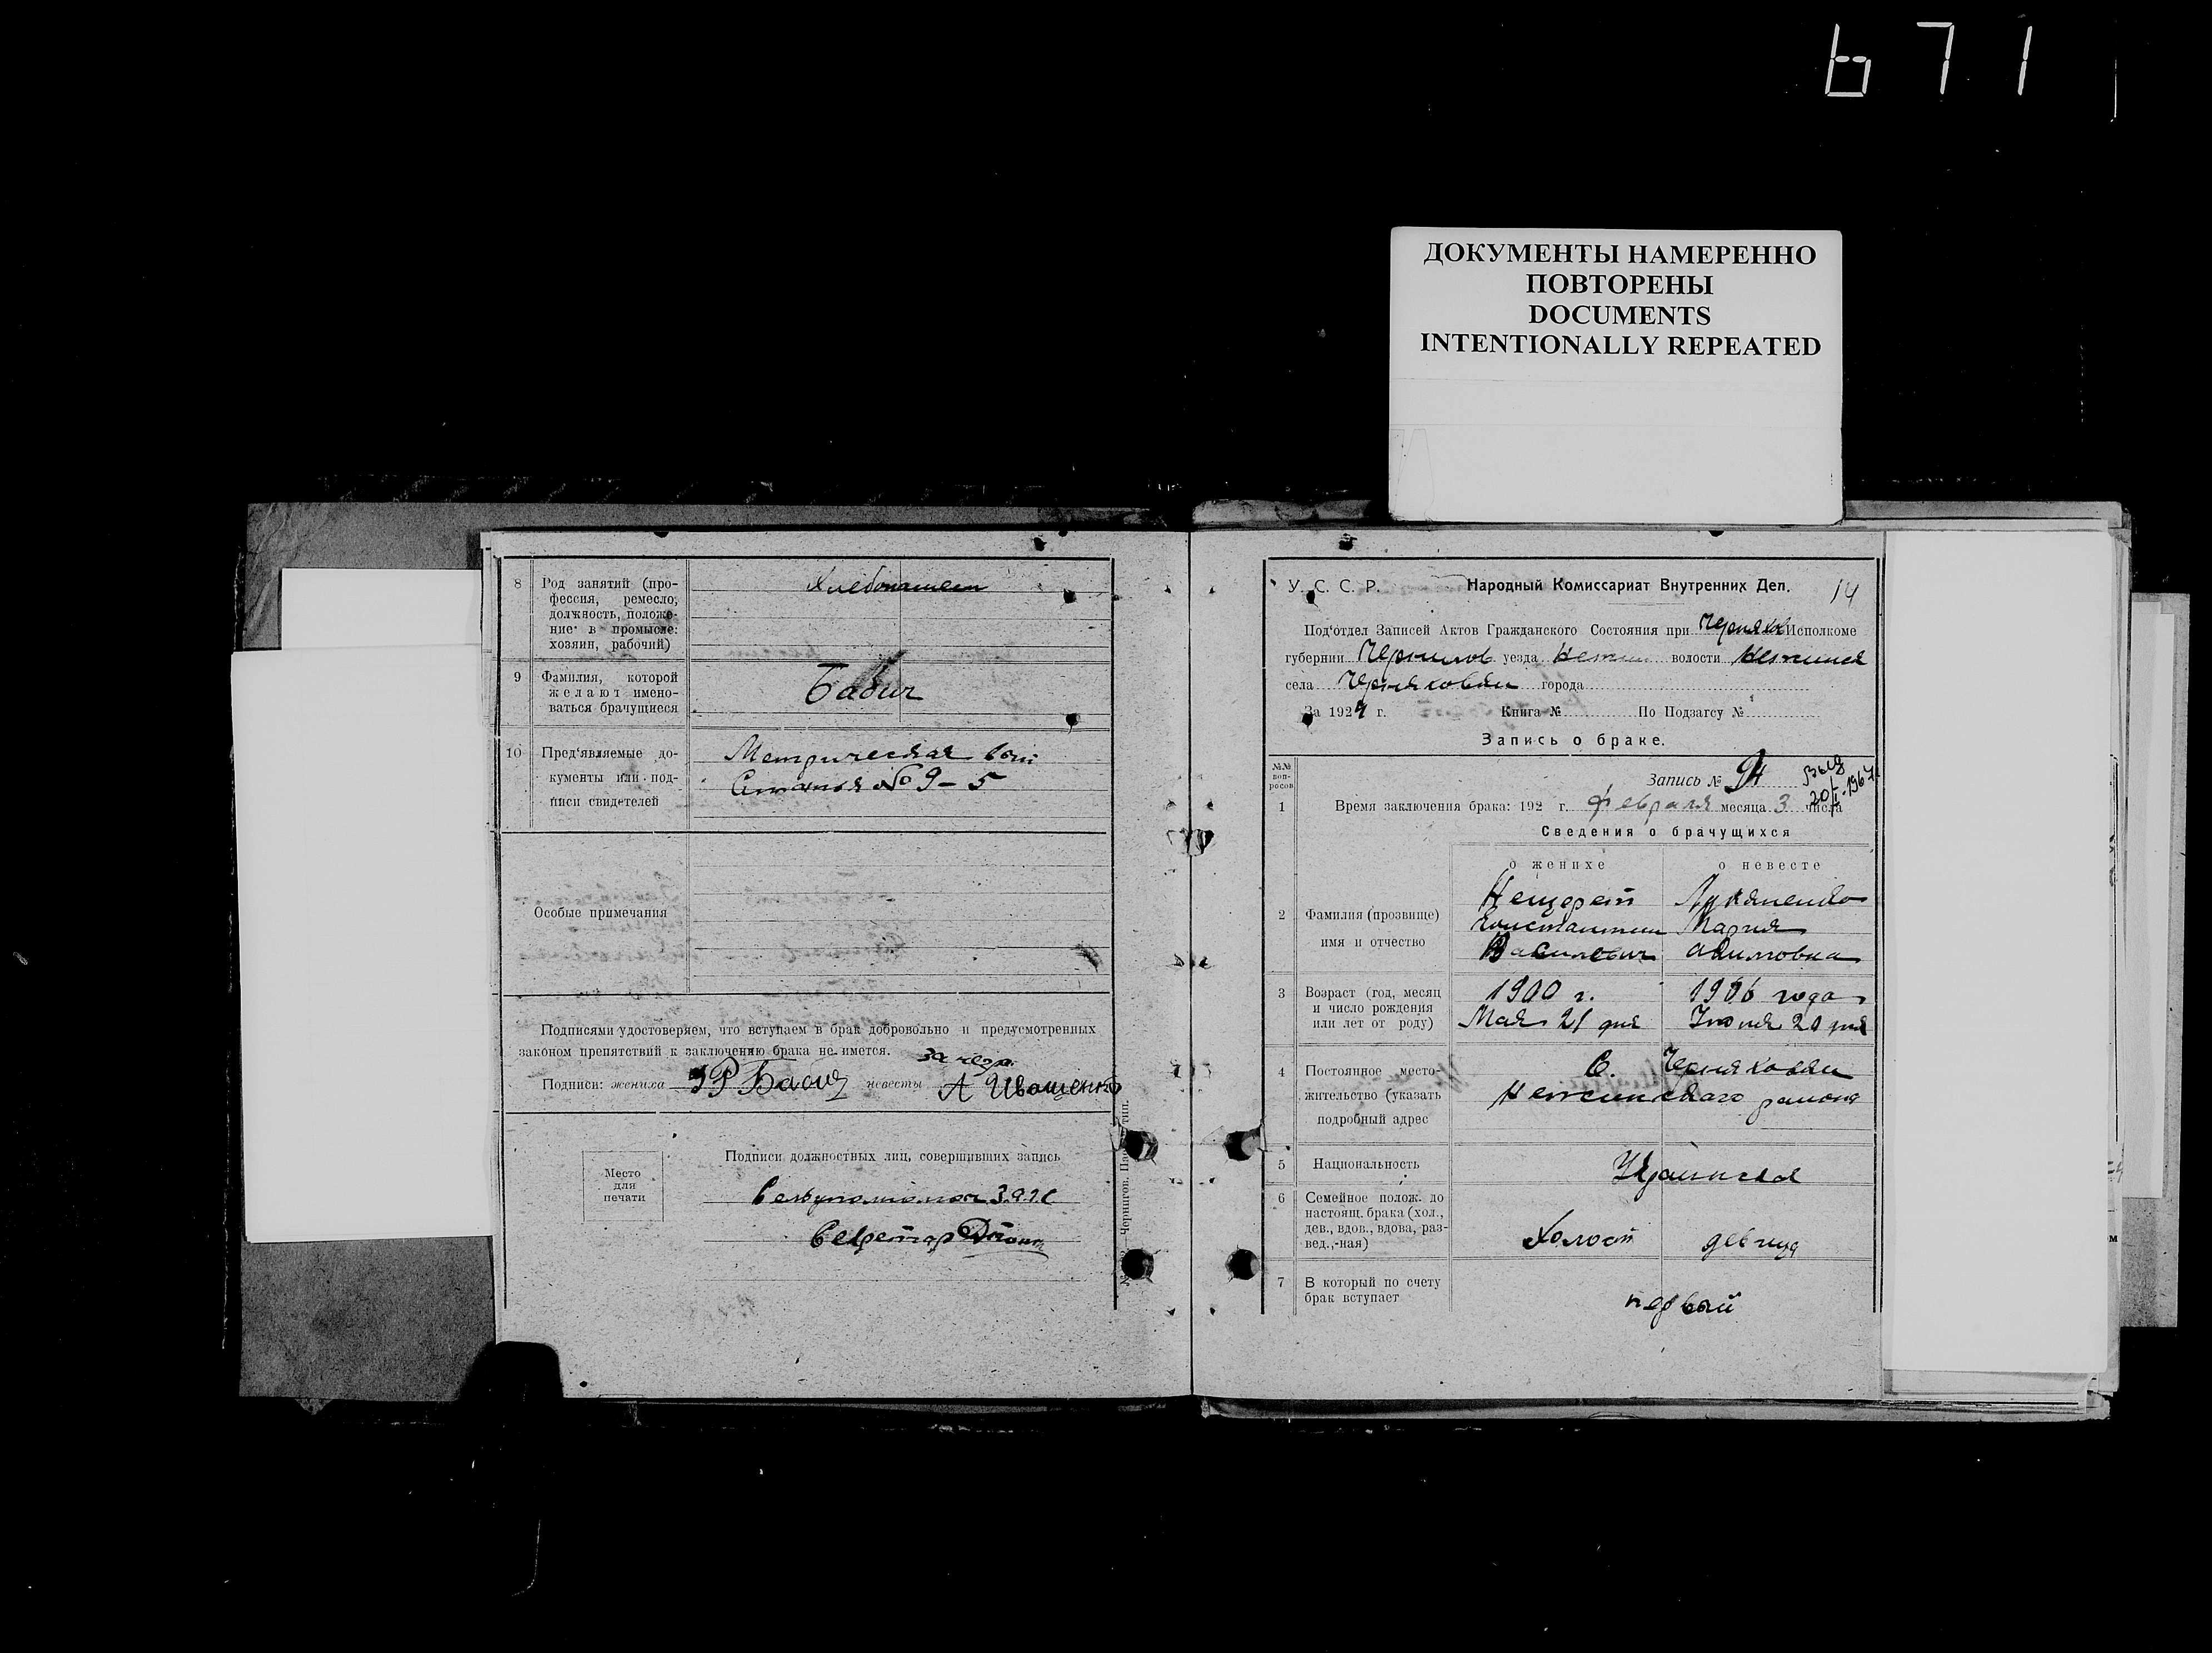 671
ДОКУМЕНТЫ НАМЕРЕННО
ПОВТОРЕНЫ
DOCUMENTS
INTENTIONALLY REPEATED
8 Род занятий (про-
фессия, ремесло,
должность, положе-
ние в промысле:
хозяин, рабочий)
Хлебопашест
9 Фамилия, которой
желают имено-
ваться брачущиеся
Бабич
10 Пред‘являемые до-
кументы или под-
писи свидетелей
Метрическая
№ 9-5
Особые примечания
Подписями удостоверяем, что вступаем в брак добровольно и предусмотренных
законом препятствий к заключению брака не имется.
Подписи: жениха невесты А Иващенко
Место
для
печати
Подписи должностных лиц, совершивших запись
Секретар
У. С. С. Р. Народный Комиссариат Внутренних Дел. 14
Под‘отдел Записей Актов Гражданского Состояния при Черняхов Исполкоме
губернии Чернигов уезда Нежин волости Нежинск
села Черняховки города
За 1924 г. Книга № По Подзагсу №
Запись о браке.
№№
воп-
росов
Запись №
20/I-1967
1 Время заключения брака: 192 г. февраля месяца 3 числа
Сведения о брачущихся
о женихе о невесте
2 Фамилия (прозвище)
имя и отчество
Нещерет
Константин
Василевич
Лукяненко
Мария
Акимовна
3 Возраст (год, месяц
и число рождения
или лет от роду)
1900 г.
Мая 21 дня
1906 года
Июня 20 дня
4 Постоянное место-
жительство (указать
подробный адрес
С. Черняховки
Нежинскаго района
5 Национальность
Украинская
6 Семейное полож. до
настоящ. брака (хол.,
дев., вдов., вдова, раз-
вед.,-ная)
Холост девица
7 В который по счету
брак вступает
первый